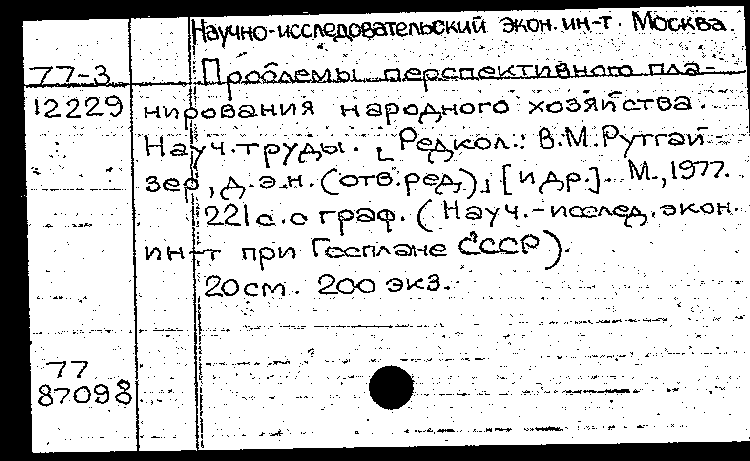 Научно-исследовательский экон. ин-т. Москва.
77-3 Проблемы перспективного пла-
12229 нирования народного хозяйства.
Науч. труды. [Редкол.: В.М. Рутгай-
зер, д.э.н. (отв. ред.)], [и др.]. М., 1977.
221 с. с граф. (Науч.-исслед. экон.
ин-т при Госплане СССР).
20 см. 200 экз.
77
87098